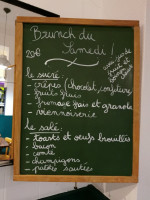 Brunch du
Samedi !
20€
le sucré :
- crêpes (chocolat, confiture)
- fruits frais
- fromage frais et granola
- viennoiserie
le salé :
- toasts et oeufs brouillés
- bacon
- comté
- champignons
- patates sautées